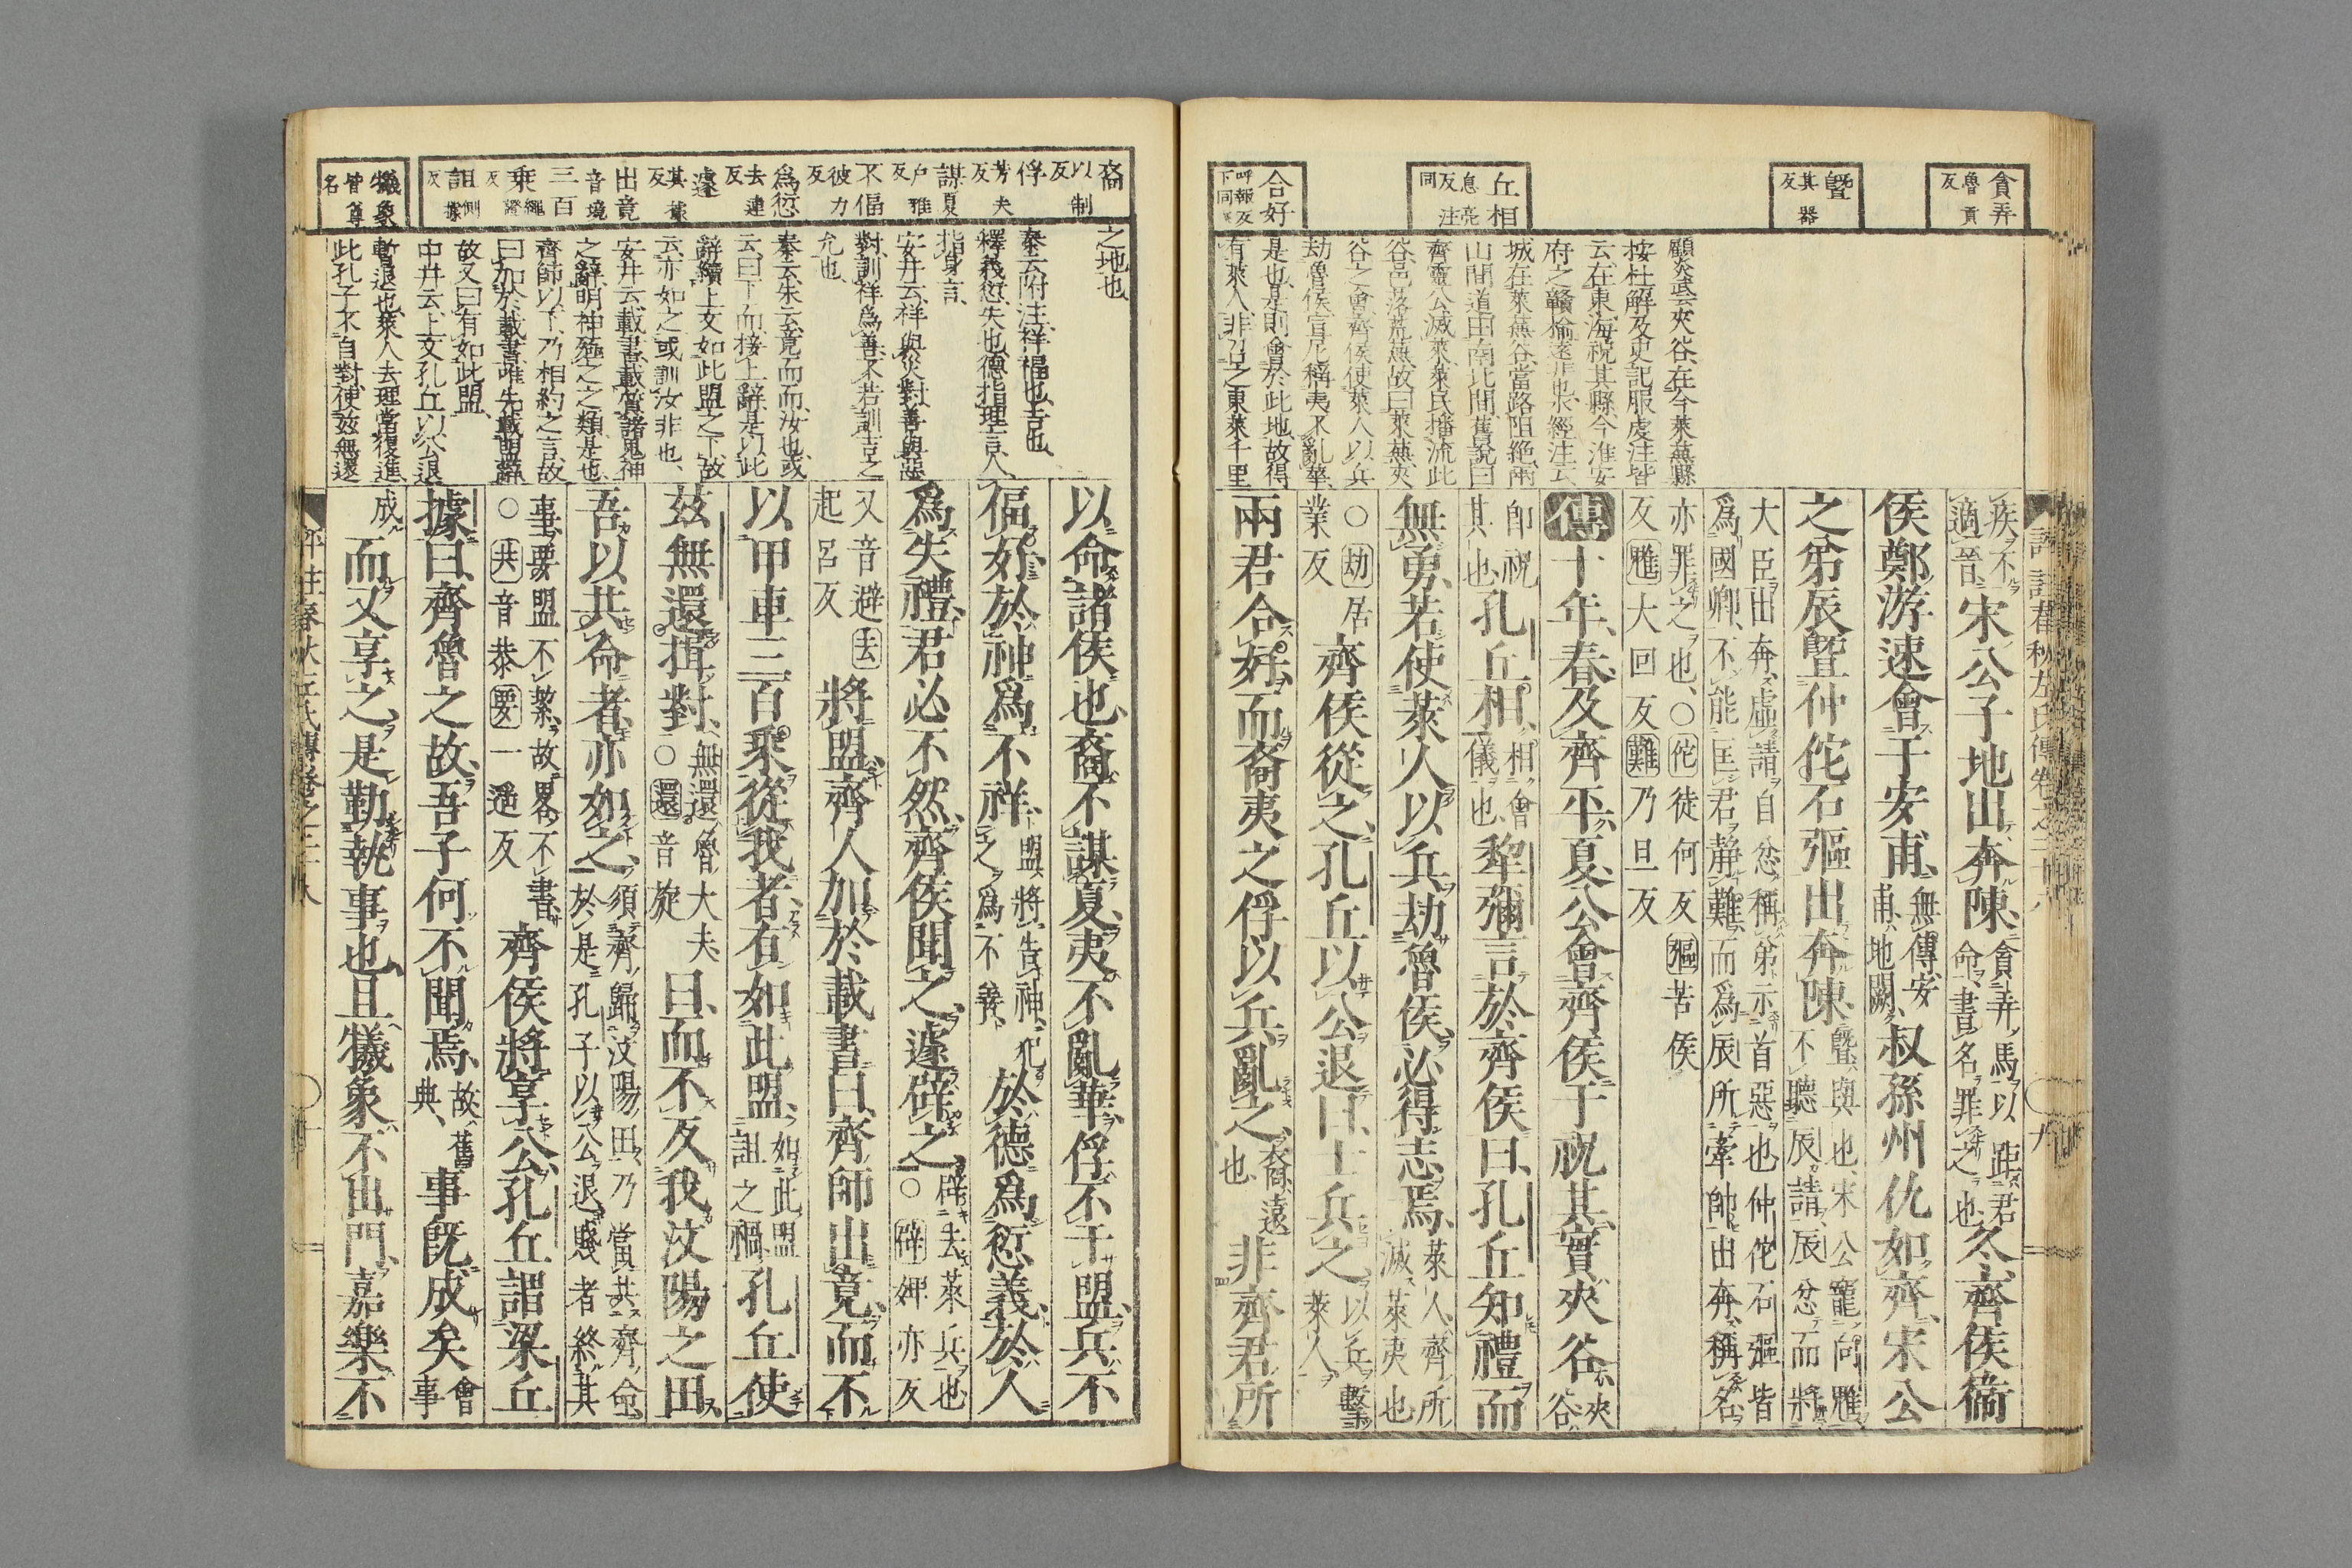 貪弄
魯貢反
曁
其器反
丘相
息亮反注同
合好
呼報反下同
顧炎武云夾谷在今萊蕪縣
按杜解及史記服虔注皆
云在東海祝其縣今淮安
府之贛榆遠非也水經注云
城在萊蕪谷當路阻絕兩
山間道由南北間舊說曰
齊靈公滅萊萊民播流此
谷邑落荒蕪故曰萊蕪夾
谷之會齊侯使萊人以兵
劫魯侯宣尼稱夷不亂華
是也是則會於此地故得
有萊人非召之東萊千里
疾不適晉宋公子地出奔陳貪弄馬以距君命書名罪之也冬齊侯衞
侯鄭游速會于安甫無傳安甫地闕叔孫州仇如齊宋公
之弟辰曁仲佗石彄出奔陳曁與也宋公寵向魋不聽辰請辰忿而將
大臣出奔虛請自忿稱弟示首惡也仲佗石彄皆
爲國卿不能匡君靜難而爲辰所牽帥出奔稱名
亦罪之也○佗徒何反彄苦侯
反魋大回反難乃旦反
傳十年春及齊平夏公會齊侯于祝其實夾谷夾谷
卽祝其也孔丘相相會儀也犂彌言於齊侯曰孔丘知禮而
無勇若使萊人以兵劫魯侯必得志焉萊人齊所滅萊夷也
○劫居業反齊侯從之孔丘以公退曰士兵之以兵擊萊人
兩君合好而裔夷之俘以兵亂之裔遠也非齊君所
裔
以制反
俘
芳夫反
謀夏
戶雅反
不偪
彼力反
爲愆
去連反
遽
其據反
出竟
音境
三百乘
繩證反
詛
側據反
犧象
曾尊名
之地也
秦云附注祥福也吉也
釋義愆失也德指理言人
指身言
安井云祥與災對善與惡
對訓祥爲善不若訓吉之
允也
秦云朱云竟而而汝也或
云曰下而接上辭是以此
辭續上文如此盟之下故
云亦如之或訓汝非也
安井云載書載質諸鬼神
之辭明神殛之之類是也
齊師以下乃相約之言故
曰加於載書唯先載盟辭
故又曰有如此盟
中井云上文孔丘以公退
暫退也萊人去理當復進
此孔子不自對使茲無還
以命諸侯也裔不謀夏夷不亂華俘不干盟兵不
偪好於神爲不祥盟將告神犯之爲不善於德爲愆義於人
爲失禮君必不然齊侯聞之遽辟之辟去萊兵也○辟婢亦反
又音避去起呂反將盟齊人加於載書曰齊師出竟而不
以甲車三百乘從我者有如此盟如此盟詛之禍孔丘使
茲無還揖對無還魯大夫○還音旋曰而不反我汶陽之田
吾以共命者亦如之須齊歸汶陽田乃當共齊命於是孔子以公退賤者終其
事要盟不絜故畧不書○共音恭要一遙反齊侯將享公孔丘謂梁丘
據曰齊魯之故吾子何不聞焉故舊典事旣成矣會事
成而又享之是勤執事也且犧象不出門嘉樂不